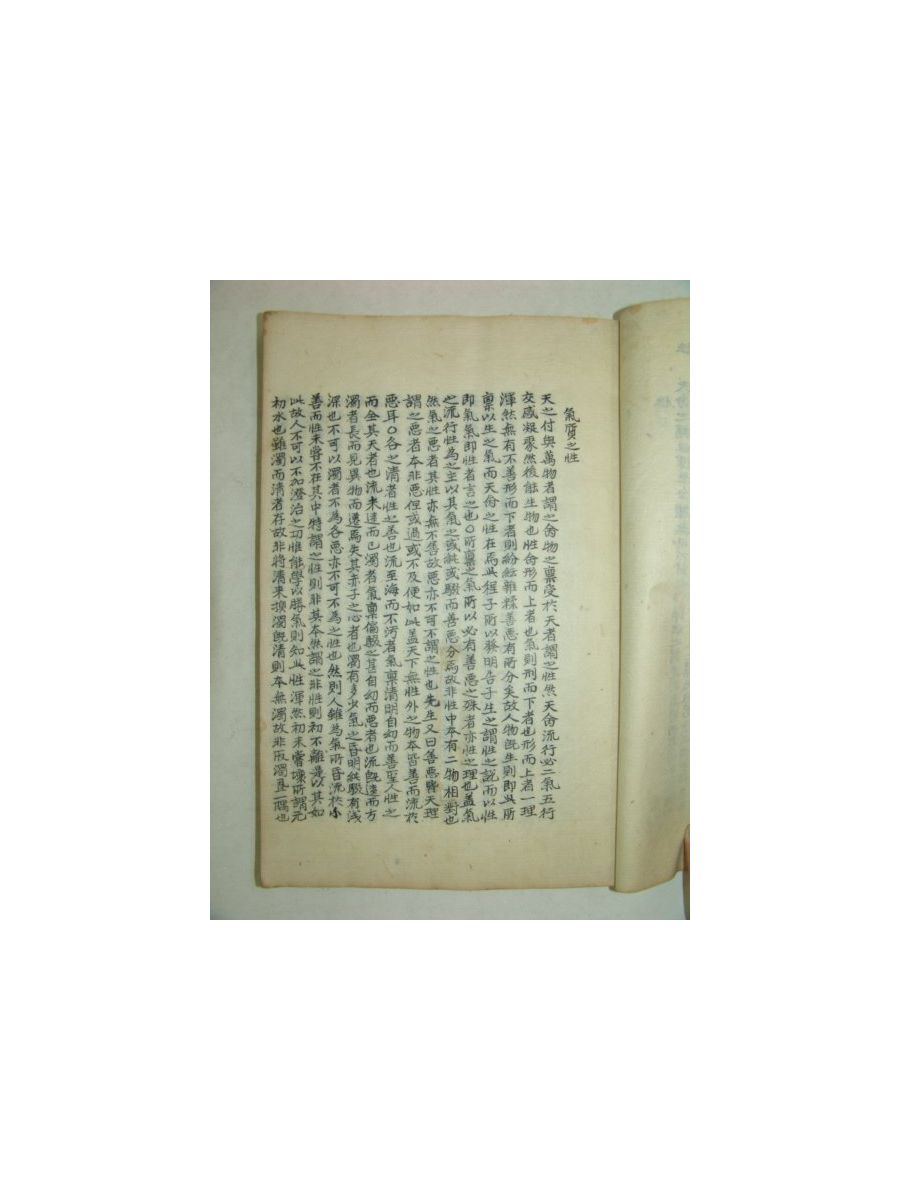 氣質之性
天之付與萬物者謂之命物之稟受於天者謂之性然天命流行必二氣五行
交感凝聚然後能生物也性命形而上者也氣則形而下者也形而上者一理
渾然無有不善形而下者則紛紜雜糅善惡有所分矣故人物旣生則即此所
稟以生之氣而天命之性在焉此程子所以發明告子生之謂性之說而以性
即氣氣即性者言之也〇所稟之氣所以必有善惡之殊者亦性之理也盖氣
之流行性為之主以其氣之或純或駁而善惡分焉故非性中本有二物相對也
然氣之惡者其性亦無不善故惡亦不可不謂之性也先生又曰善惡皆天理
謂之惡者本非惡但或過或不及便如此盖天下無性外之物本皆善而流於
惡耳〇各之清者性之善也流至海而不汚者氣稟清明自幼而善聖人性之
而全其天者也流未遠而已濁者氣稟偏駁之甚自幼而惡者也流旣遠而方
濁者長而見異物而遷焉失其赤子之心者也濁有多少氣之昏明純駁有浅
深也不可以濁者不為各惡亦不可不為之性也然則人雖為氣所昏流於小
善而性未嘗不在其中特謂之性則非其本然謂之非性則初不離是以其如
此故人不可以不加澄治之功惟能學以勝氣則知此性渾然初未嘗壞所謂元
初水也雖濁而清者存故非將清來換濁旣清則本無濁故非取濁置一隅也